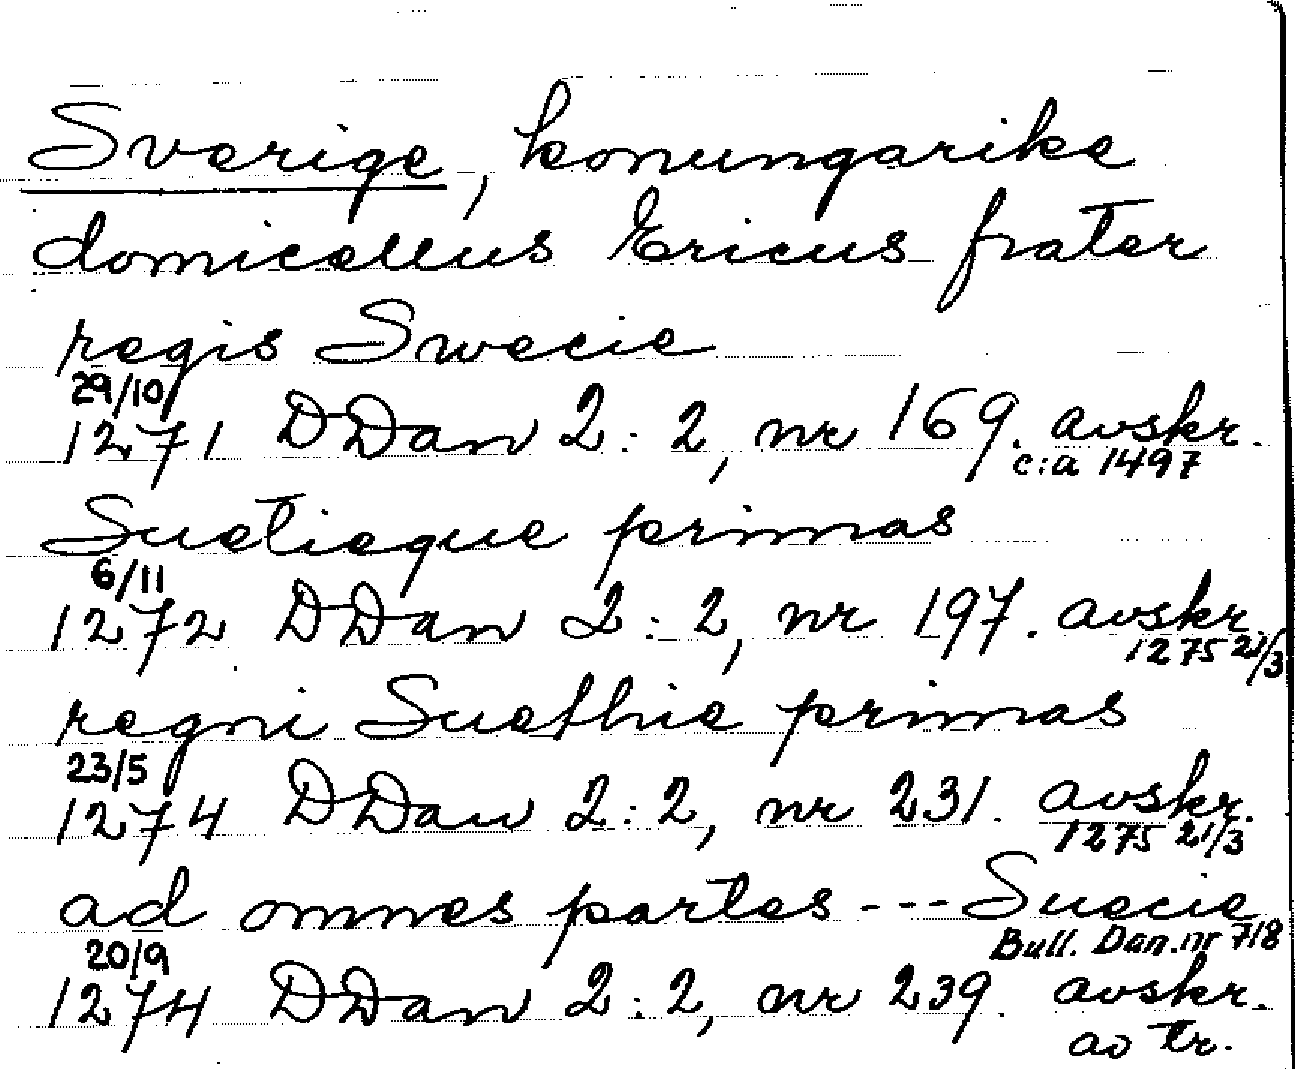 Sverige, konungarike
domicellus Ericus frater
regis Swecie
29/10
1271 DDan 2:2, nr 169. avskr.
c:a 1497
Suetieque primas
6/11
1272 DDan 2:2, nr 197. avskr
1275 21/3
regni Suethie primas
23/5
1274 DDan 2:2, nr 231. avskr.
1275 21/3
ad omnes partes --- Suecie
20/9 Bull. Dan. nr 718
1274 DDan 2:2, nr 239. avskr.
av tr.